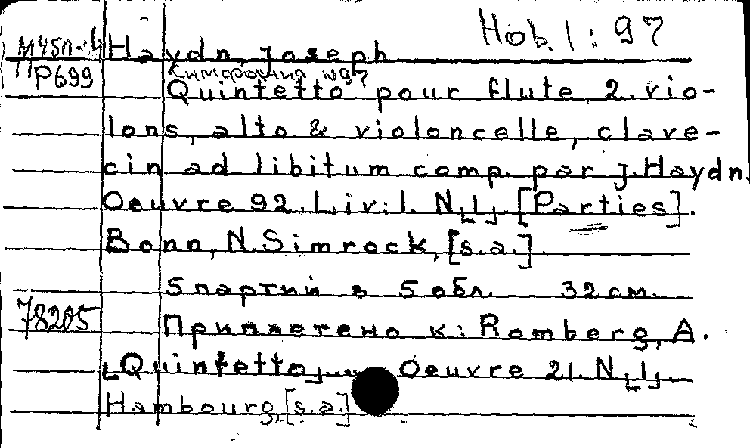 Hob. I : 97
М45п-4 Haydn, Joseph
P699 Симфония №97
Quintetto pour flute 2 vio-
lons, alto & violoncelle, clave-
cin ad libitum comp. par J. Haydn.
Oeuvre 92. Liv: 1. N[1] [Parties].
Bonn, N. Simrock, [s.a.]
5 партий в 5 обл. 32 см.
78205 Приплетено к: Romberg, A.
[Quintetto]... Oeuvre 21. N[1].
Hambourg, [s.a.]